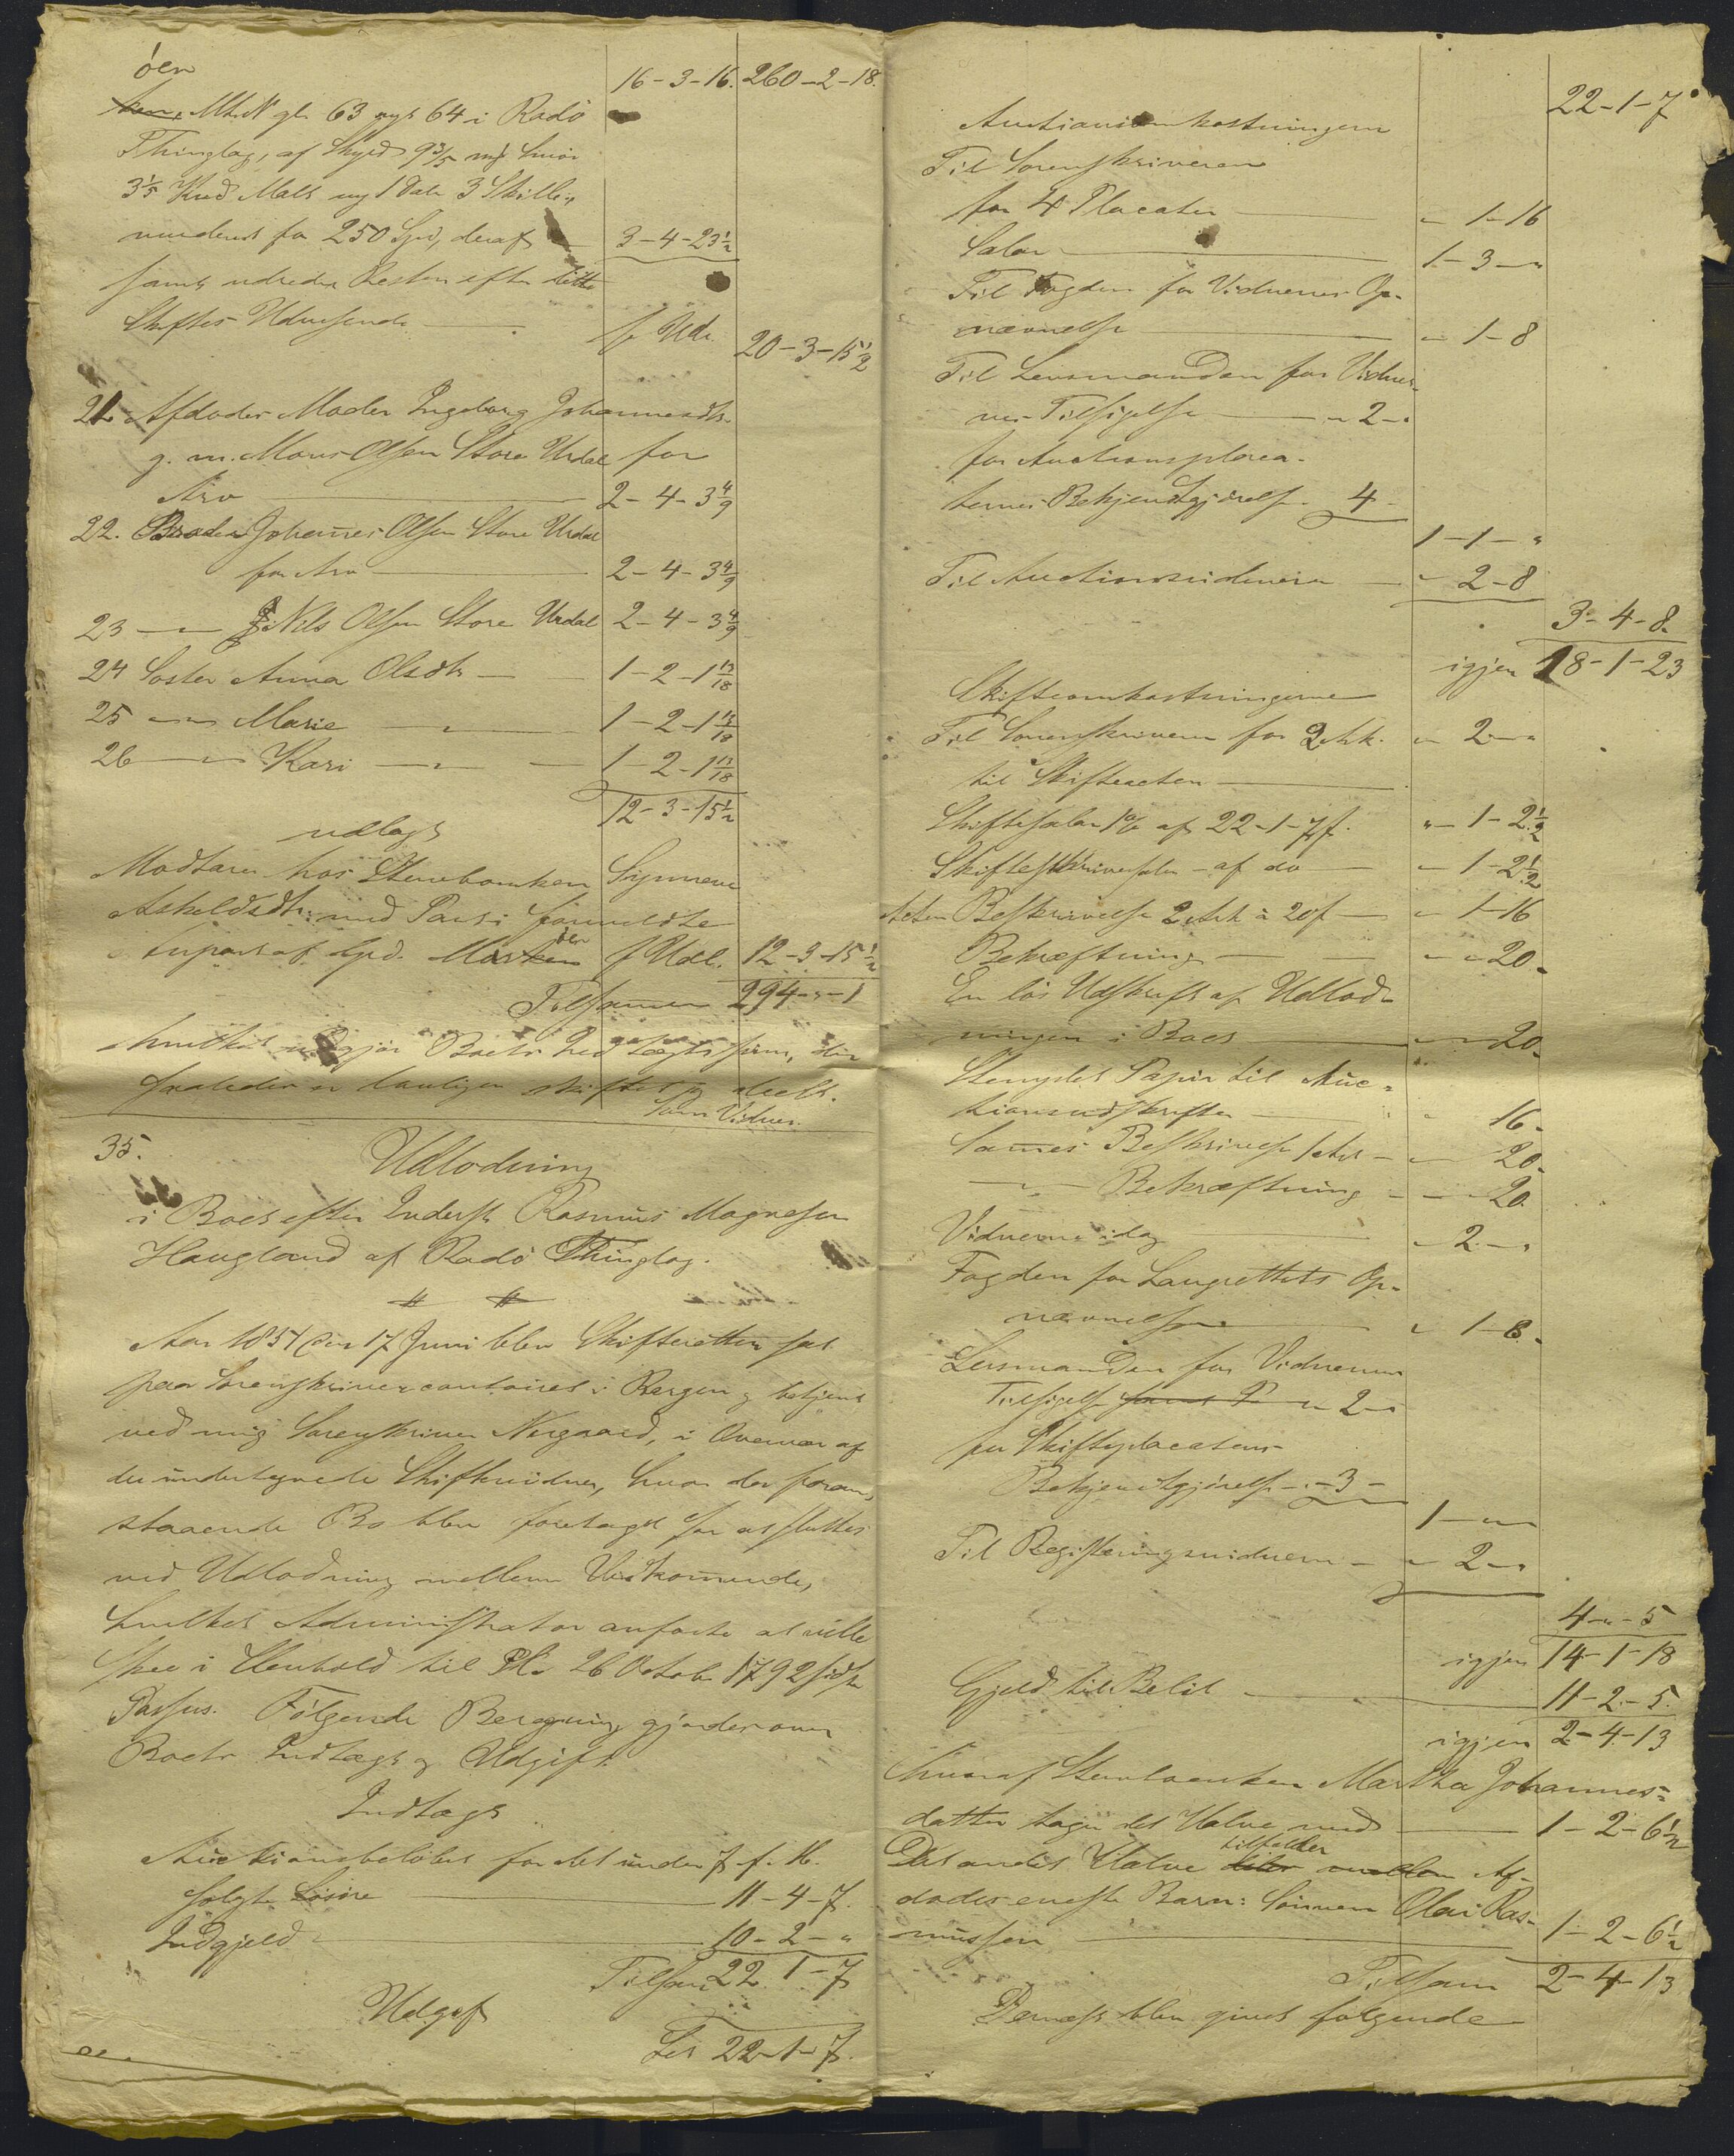 öen
16-3-16. 260-2-18.
Mt. N gl. 63 nyt 64 i Radö
Thinglag, af Skyld 9 3/5 mk Smör
3 1/5 Kud Malt ny 1 Dalr 3 Skill.
vurderet for 250 Spd, deraf — 3-4-23 1/2
samt udreder Resten efter dette
Skiftes Udvisende — 20-3-15 1/2
21. Afdödes Moder Ingeborg Johannesdtr
g. m. Mons Olsen Store Urdal for
Arv — 2-4-3 4/9
22. Broder Johannes Olsen Store Urdal
for Arv — 2-4-3 4/9
23 — " Nils Olsen Store Urdal 2-4-3 4/9
24 Söster Anna Olsdtr — 1-2-1 13/18
25 —"— Marie —"— 1-2-1 13/18
26 —"— Kari —"— 1-2-1 13/18
12-3-15 1/2
udlagt
Modtaes hos Stervboenken Synneve
Askeldsdtr. med Part i formeldte
Anpart af Grd. Marköen f Udl. 12-3-15 1/2
Tilsammen 294-"-1
hvilket udgjör Boets Indtægts sum, der
saaledes er lovligen skiftet og deelt.
Som Vidner.
35.
Udlodning
i Boet efter Inderst Rasmus Magnesen
Haugland af Radö Thinglag.
Aar 1857 den 17 Juni blev Skifteretten sat
paa Sorenskrivercontoiret i Bergen og betjent
ved mig Sorenskriver Nergaard, i Overvær af
de undertegnede Skiftevidner, hvor da foran,
staaende Bo blev foretaget for at sluttes
ved Udlodning mellem Vedkommende,
hvilket Administrator anförte at ville
skee i Henhold til Pl. 26 October 1792 sidste
Passus. Fölgende Beregning gjördes over
Boets Indtægt og Udgift.
Indtægt
Auctionsbelöbet for det under f. f. M.
solgte Lösöre — 11-4-7.
Indgjeld — 10-2-"
Tilsam. 22-1-7
Udgift
Lat 22-1-7.
22-1-7
Auctionsomkostningerne
Til Sorenskriveren
for 4 Placater — " 1-16
Salar — 1-3-"
Til Fogden for Vidnernes Op-
nævnelse — " 1-8
Til Lensmanden for Vidner-
nes Tilsigelse — " 2-"
for Auctionsplaca-
ternes Bekjendtgjörelse - 4 -
1-1-"
Til Auctionsvidnerne — " 2-8
3-4-8.
igjen 18-1-23
Skifteomkostningerne
Til Sorenskriveren for 2 Ark. " 2-"
til Skifteacten —
Skiftesalar 1% af 22-1-7 f. " 1-2 1/2
Skifteskriversalar - af do — " 1-2 1/2
Acten Beskrivelse 2 Ark à 20 f — " 1-16
Bekræftning — " " 20-
En lös Udskrift af Udlod-
ningen i Boet — " " 20-
Stemplet Papir til Auc-
tionsudskriften — " 16-
Sammes Beskrivelse 1 Ark — " 20-
—"— Bekræftning - - - 20.
Vidnerne idag — " 2-"
Fogden for Laugrettets Op-
nævnelse — " 1-8-
Lensmanden for Vidnernes
Tilsigelse " 2-"
for Skifteplacatens
Bekjendtgjörelse - " -3-
1-"-"
Til Registeringsvidnerne — " 2-"
4-"-5
igjen 14-1-18
Gjeld til Belöb — 11-2-5.
igjen 2-4-13
hvoraf Stervboenken Martha Johannes-
datter tager det Halve med — 1-2-6 1/2
Det andet Halve tilfalder Af-
dödes eneste Barn: Sönnen Olai Ras-
mussen — 1-2-6 1/2
Tilsam 2-4-13
Dernæst blev givet fölgende